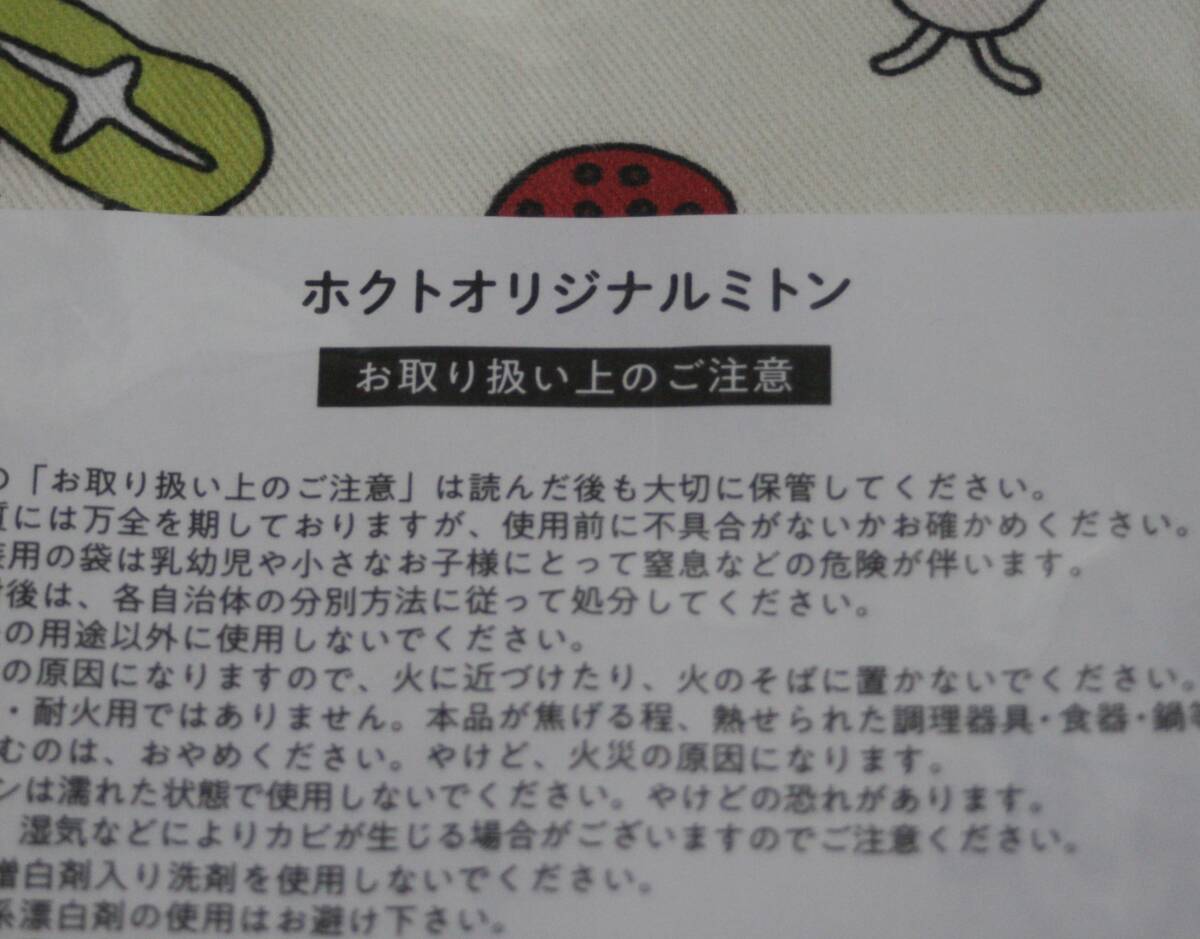 ホクトオリジナルミトン
お取り扱い上のご注意
の「お取り扱い上のご注意」は読んだ後も大切に保管してください。
質には万全を期しておりますが、使用前に不具合がないかお確かめください。
装用の袋は乳幼児や小さなお子様にとって窒息などの危険が伴います。
後は、各自治体の分別方法に従って処分してください。
の用途以外に使用しないでください。
の原因になりますので、火に近づけたり、火のそばに置かないでください。
・耐火用ではありません。本品が焦げる程、熱せられた調理器具・食器・鍋等
むのは、おやめください。やけど、火災の原因になります。
ンは濡れた状態で使用しないでください。やけどの恐れがあります。
湿気などによりカビが生じる場合がございますのでご注意ください。
増白剤入り洗剤を使用しないでください。
系漂白剤の使用はお避け下さい。